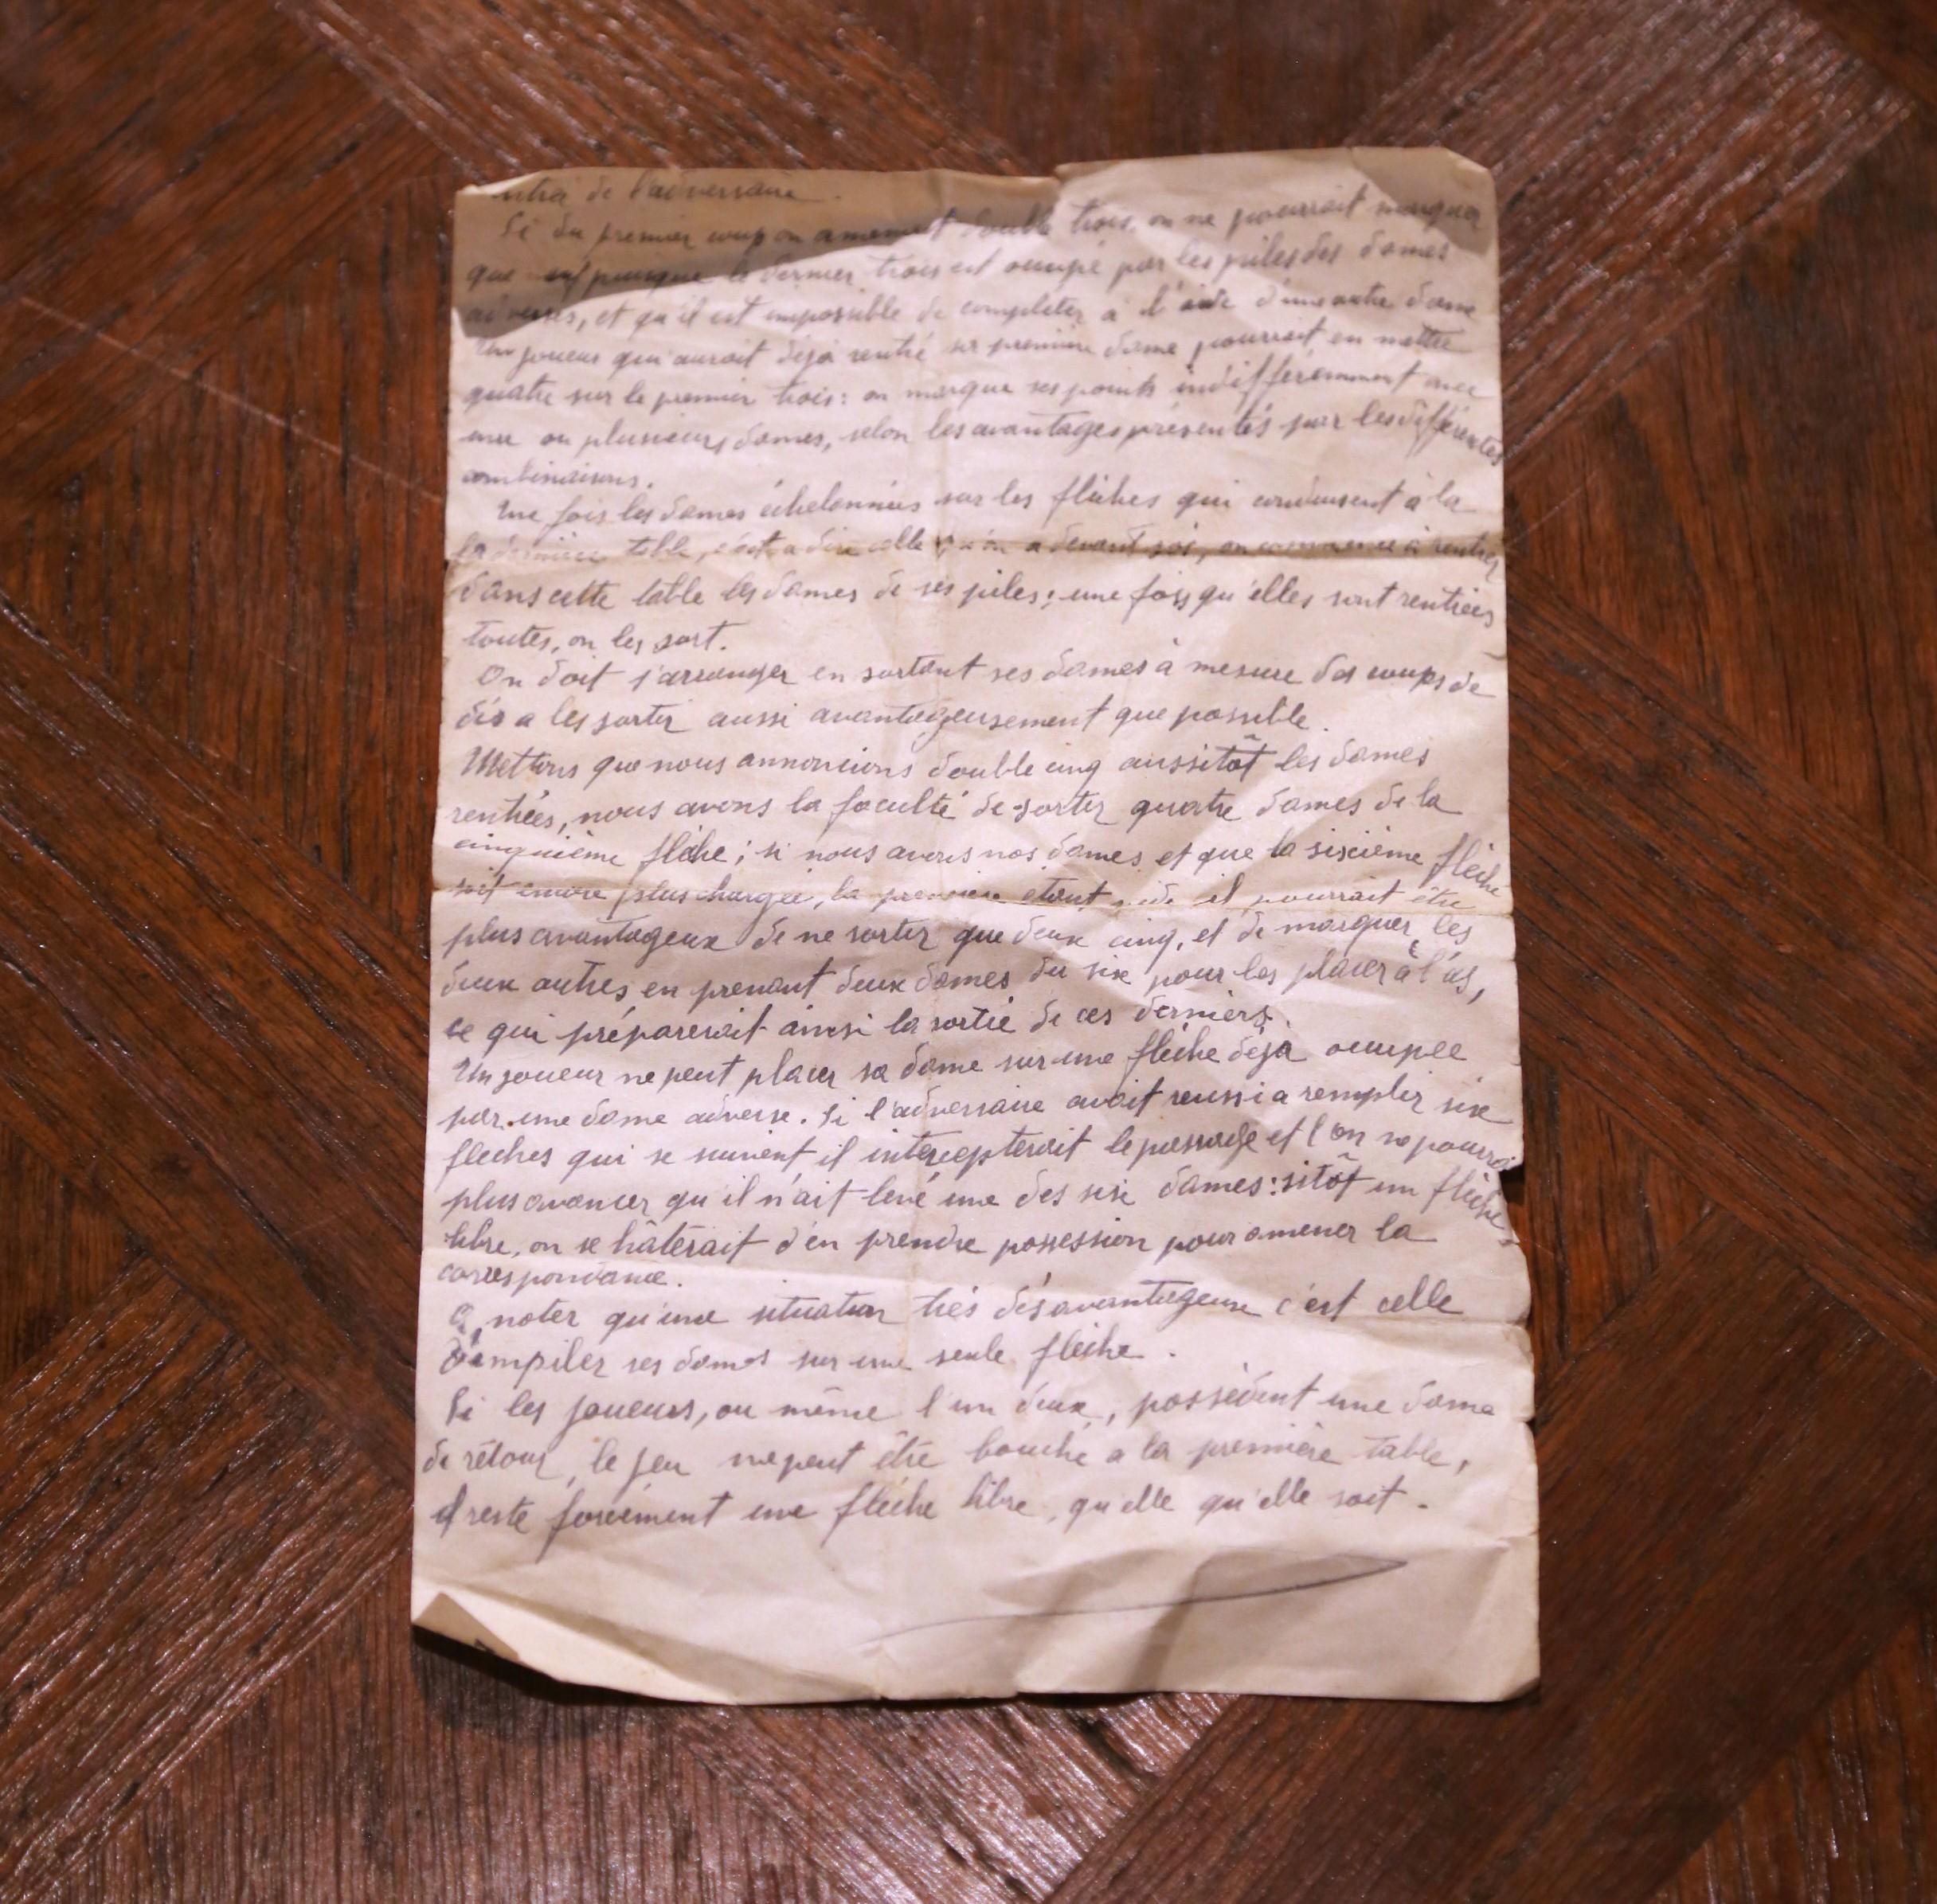 de l'adversaire.
Si du premier coup on amenait double trois, on ne pourrait marquer
que puisque le dernier trois est occupé par les piles des dames
adverses, et qu'il est impossible de compléter à l'aide d'une autre dame
Un joueur qui aurait déjà rentré sa première dame pourrait en mettre
quatre sur le premier trois: on marque ses points indifféremment avec
une ou plusieurs dames, selon les avantages présentés par les différentes
combinaisons.
Une fois les dames échelonnées sur les flèches qui conduisent à la
la dernière table, c'est a dire celle qu'on a devant soi, on commence à rentrer
dans cette table les dames de ses piles; une fois qu'elles sont rentrées
toutes, on les sort.
On doit s'arranger en sortant ses dames à mesure des coups de
dés a les sortir aussi avantageusement que possible.
Mettons que nous annoncions double cinq aussitôt les dames
rentrées, nous avons la faculté de sortir quatre dames de la
cinquième flèche; si nous avons nos dames et que la sixième flèche
soit encore plus chargée, la première étant vide il pourrait être
plus avantageux de ne sortir que deux cinq, et de marquer les
deux autres en prenant deux dames du six pour les placer à l'as,
ce qui préparerait ainsi la sortie de ces derniers.
Un joueur ne peut placer sa dame sur une flèche déjà occupée
par une dame adverse. Si l'adversaire avait reussi a remplir six
fleches qui se suivent il intercepterait le passage et l'on ne pourrai
plus avancer qu'il n'ait levé une des six dames: sitôt un flèche
libre, on se hâterait d'en prendre possession pour amener la
correspondance.
A noter qu'une situation très désavantageuse c'est celle
d'empiler ses dames sur une seule flèche.
Si les joueurs, ou même l'un deux, possèdent une dame
de retour, le jeu ne peut être bouché a la première table,
il reste forcément une flèche libre, qu'elle qu'elle soit.